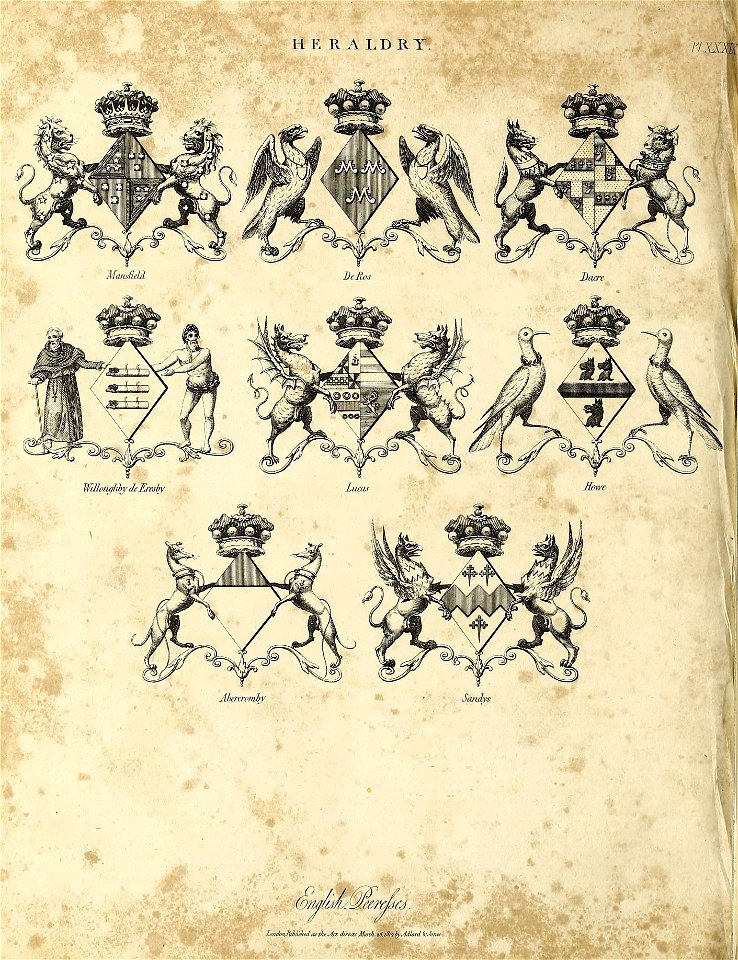 HERALDRY.
Mansfield
De Ros
Dacre
Willoughby de Eresby
Lucas
Howe
Abercromby
Sandys
English Peeresses.
London, Published as the Act directs, March by Adlard & Jones